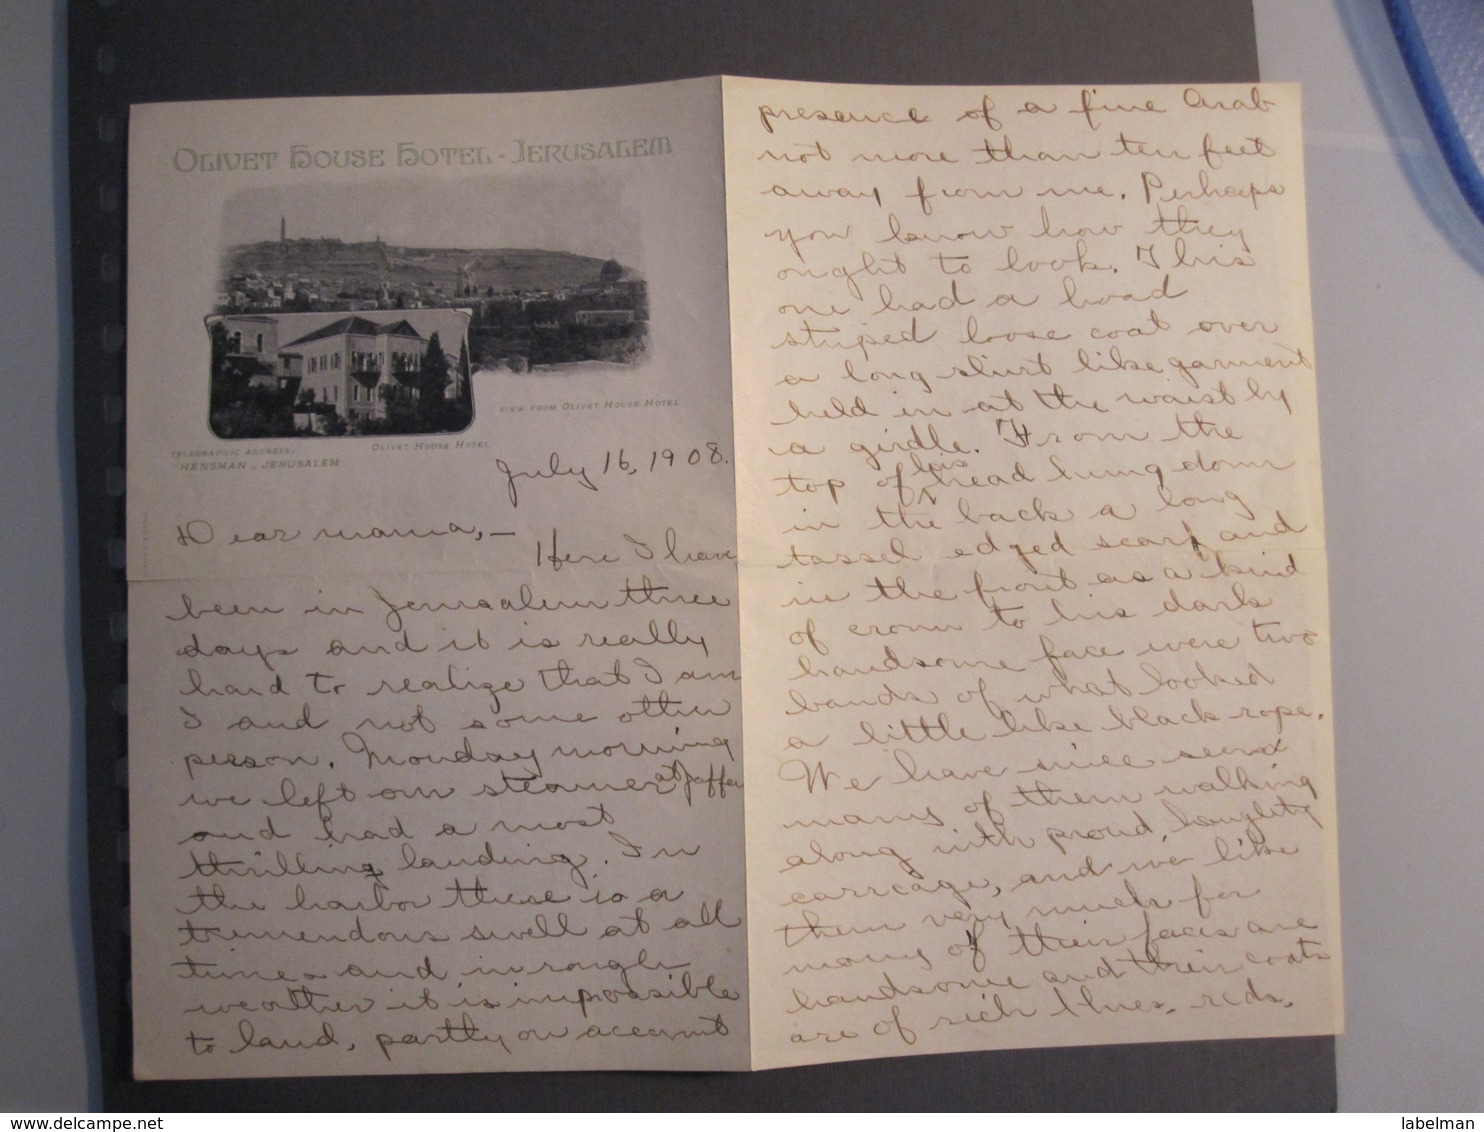 OLIVET HOUSE HOTEL - JERUSALEM
VIEW FROM OLIVET HOUSE HOTEL
OLIVET HOUSE HOTEL
TELEGRAPHIC ADDRESS:
"HENSMAN - JERUSALEM
July 16, 1908.
Dear mama, —
Here I have
been in Jerusalem three
days and it is really
hard to realize that I am
I and not some other
person. Monday morning
we left our steamer at Jaffa
and had a most
thrilling landing. In
the harbor there is a
tremendous swell at all
times and in rough
weather it is impossible
to land, partly on account
presence of a fine Arab
not more than ten feet
away from me. Perhaps
you know how they
ought to look. This
one had a broad
striped loose coat over
a long shirt like garment
held in at the waist by
a girdle. From the
top of his head hung down
in the back a long
tassel edged scarf and
in the front as a kind
of crown to his dark
handsome face were two
bands of what looked
a little like black rope.
We have since seen
many of them walking
along with proud, haughty
carriage, and we like
them very much for
many of their faces are
handsome and their coats
are of rich blues, reds,
delcampe.net
labelman